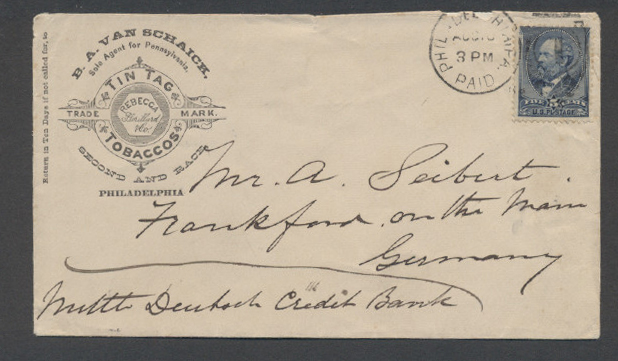 Return in Ten Days if not called for, to
B. A. VAN SCHAICK,
Sole Agent for Pennsylvania.
TIN TAG
TRADE MARK.
REBECCA
& Co.
TOBACCOS
SECOND AND RACE
PHILADELPHIA
PHILADELPHIA PA
AUG
3 PM
PAID
5
U.S. POSTAGE
Mr. A. Seibert.
Frankford on the Main
Germany
Deutsch Credit Bank